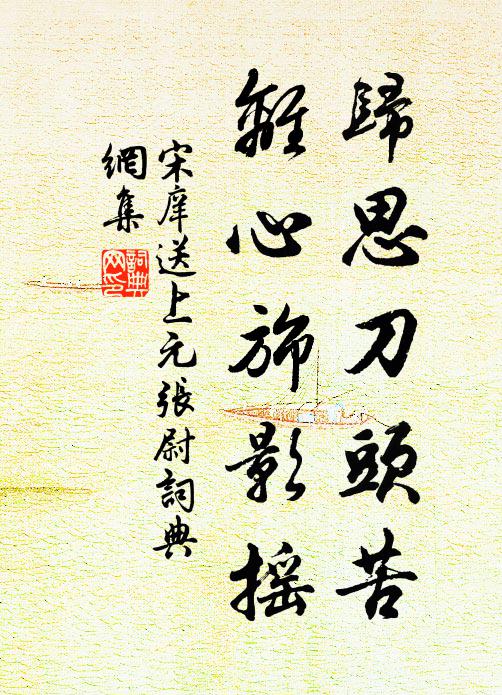 歸思刀頭苦
離心旆影搖
宋庠送上元張尉詞典
網集
詞典
网印